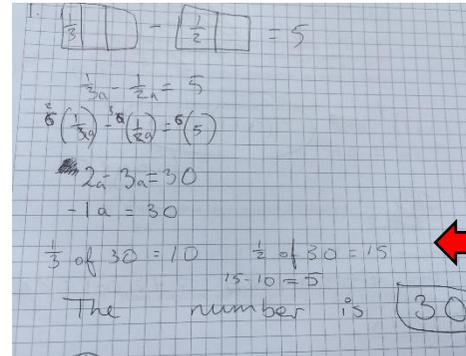 1. 1/3 - 1/2 = 5
1/3a - 1/2a = 5
6(1/3a) - 6(1/2a) = 6(5)
2a - 3a = 30
-1a = 30
1/3 of 30 = 10 1/2 of 30 = 15
15-10 = 5
The number is 30